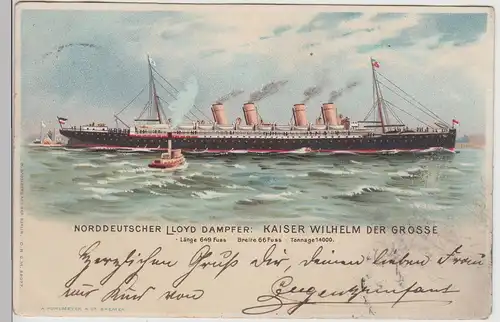 NORDDEUTSCHER LLOYD DAMPFER: KAISER WILHELM DER GROSSE
· Länge 649 Fuss Breite 66 Fuss Tonnage 14000.
Herzlichen Gruß Dir, deinen lieben Frau
und Kind von